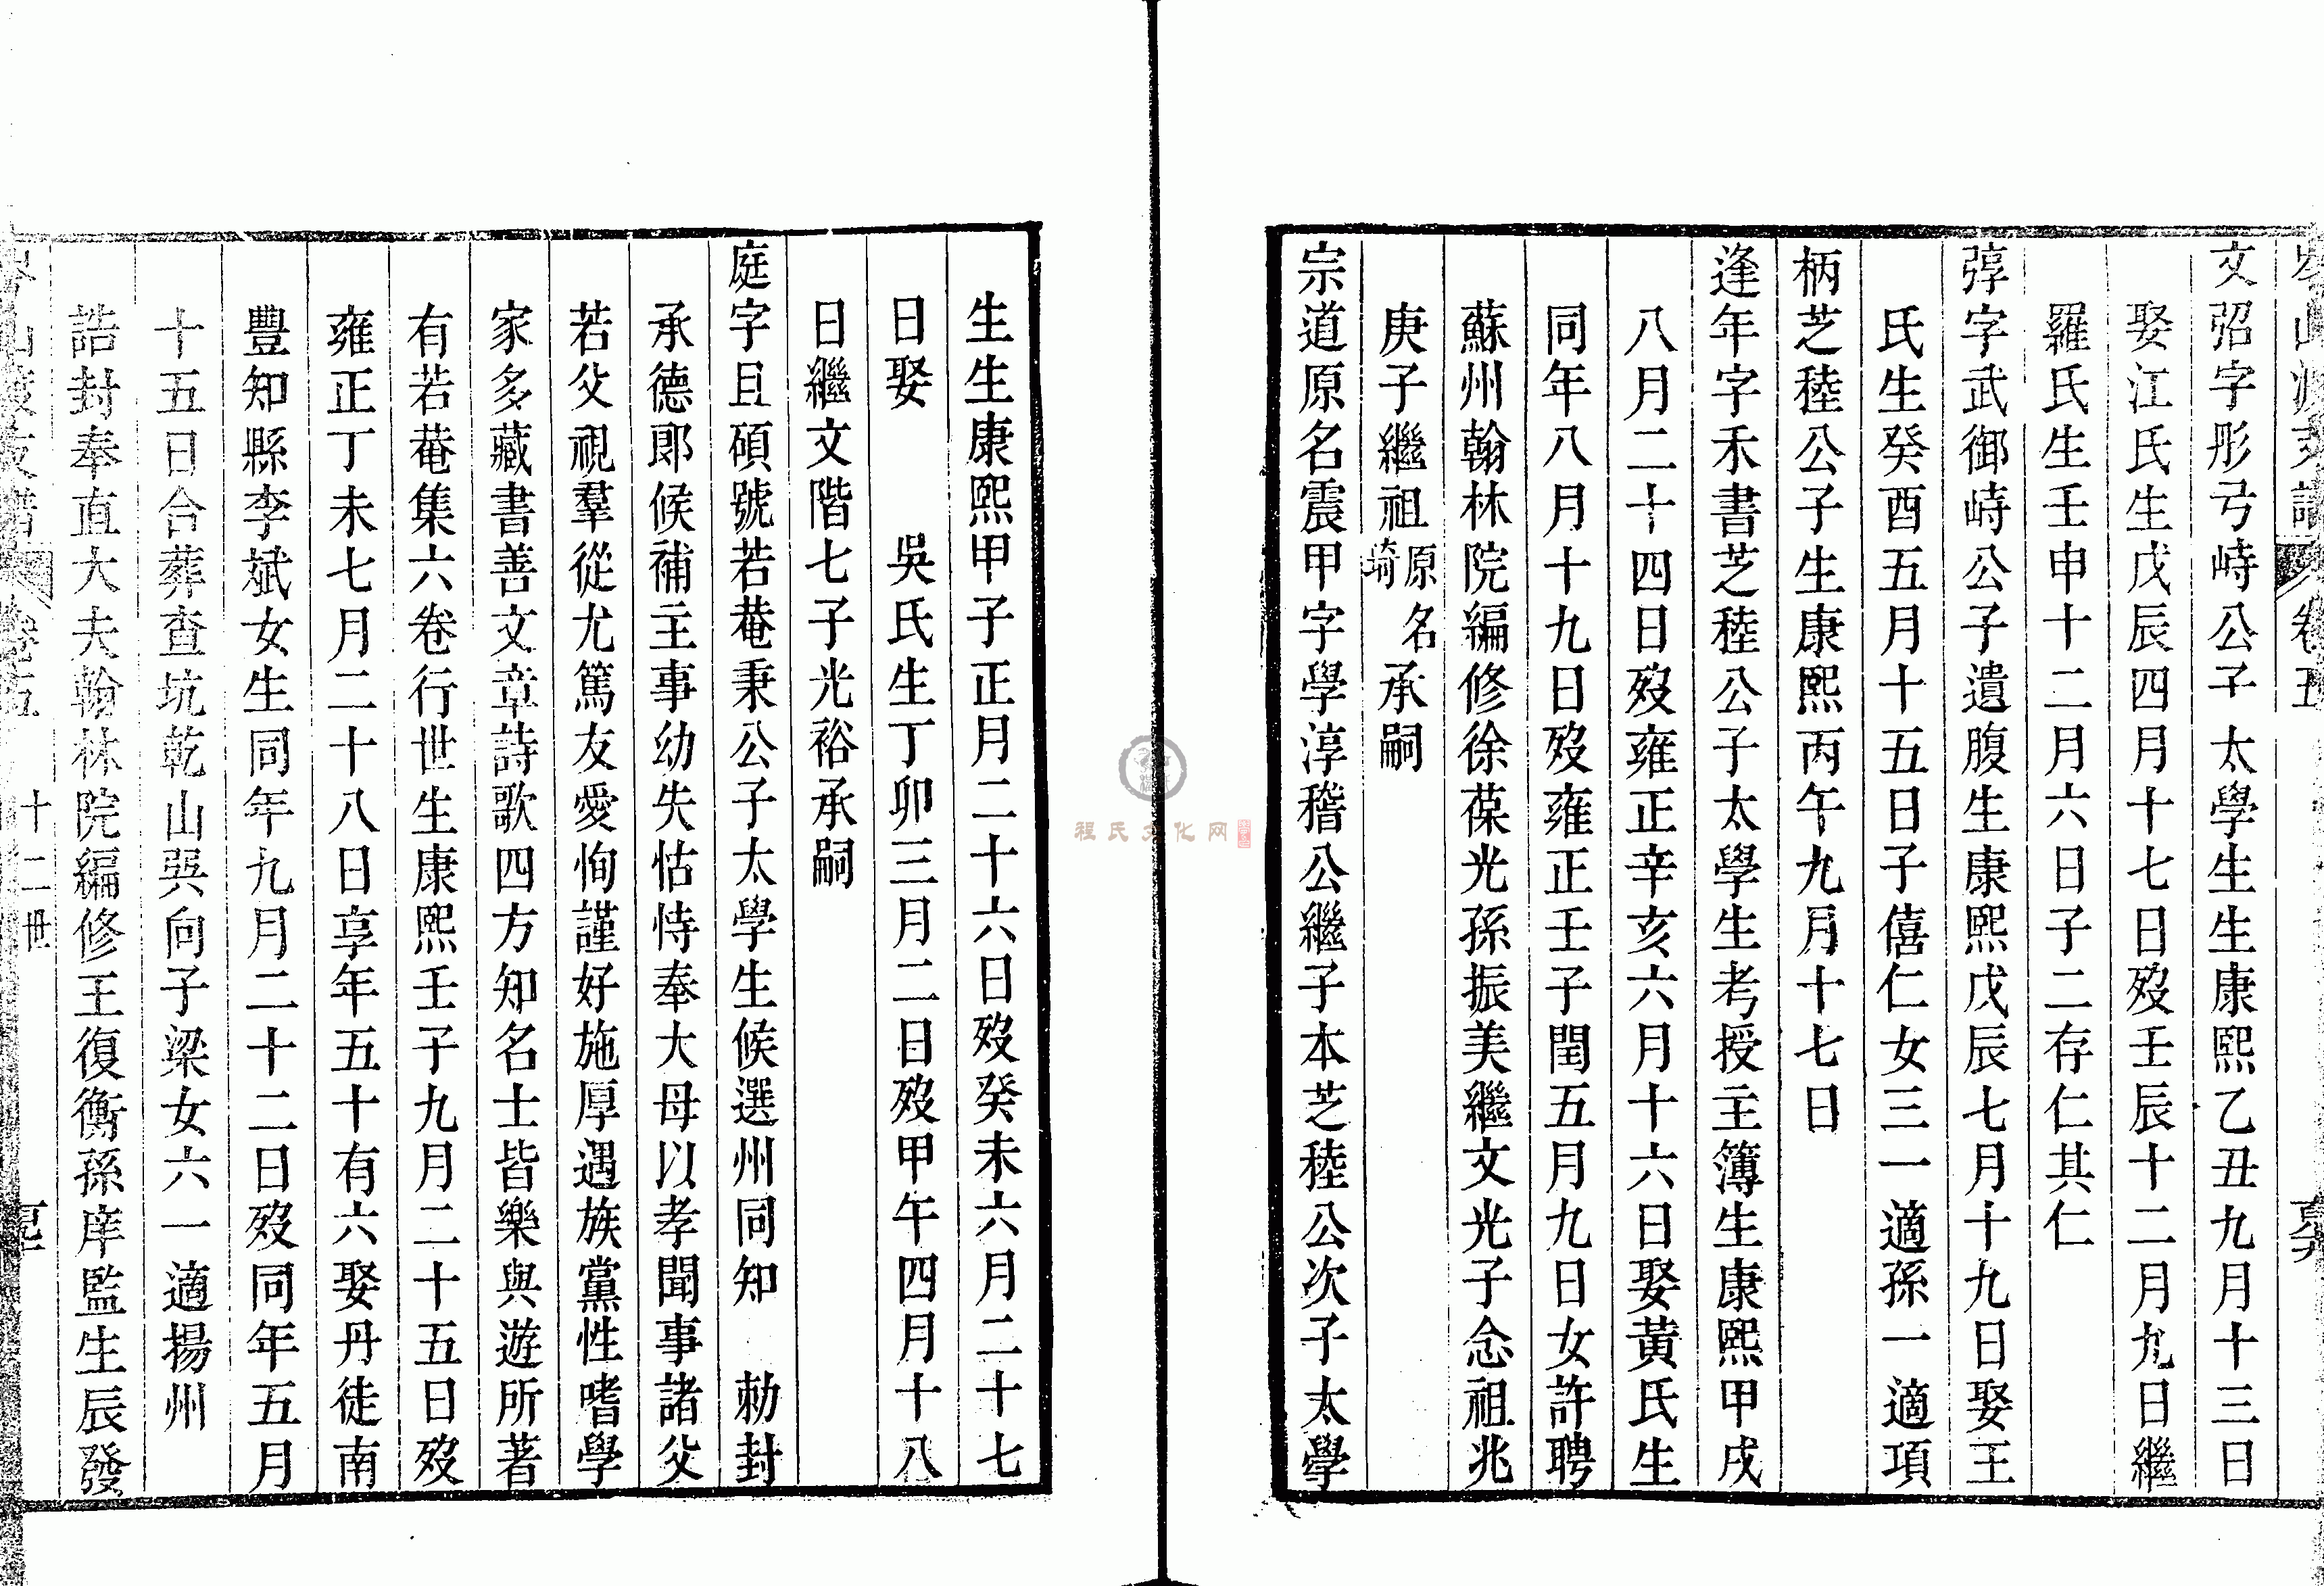 文弨字彤弓峙公子太學生生康熙乙丑九月十三日
娶江氏生戊辰四月十七日歿壬辰十二月九日繼
羅氏生壬申十二月六日子二存仁其仁
弴字武御峙公子遺腹生康熙戊辰七月十九日娶王
氏生癸酉五月十五日子僖仁女三一適孫一適項
柄芝稑公子生康熙丙午九月十七日
逢年字禾書芝稑公子太學生考授主簿生康熙甲戌
八月二十四日歿雍正辛亥六月十六日娶黃氏生
同年八月十九日歿雍正壬子閏五月九日女許聘
蘇州翰林院編修徐葆光孫振美繼文光子念祖兆
庚子繼祖原名
崎承嗣
宗道原名震甲字學淳稽公繼子本芝稑公次子太學
生生康熙甲子正月二十六日歿癸未六月二十七
日娶 吳氏生丁卯三月二日歿甲午四月十八
日繼文階七子光裕承嗣
庭字且碩號若菴秉公子太學生候選州同知 勅封
承德郎候補主事幼失怙恃奉大母以孝聞事諸父
若父視羣從尤篤友愛恂謹好施厚遇族黨性嗜學
家多藏書善文章詩歌四方知名士皆樂與遊所著
有若菴集六卷行世生康熙壬子九月二十五日歿
雍正丁未七月二十八日享年五十有六娶丹徒南
豐知縣李斌女生同年九月二十二日歿同年五月
十五日合葬查坑乾山巽向子梁女六一適揚州
誥封奉直大夫翰林院編修王復衡孫庠監生辰發
卷五 十二世